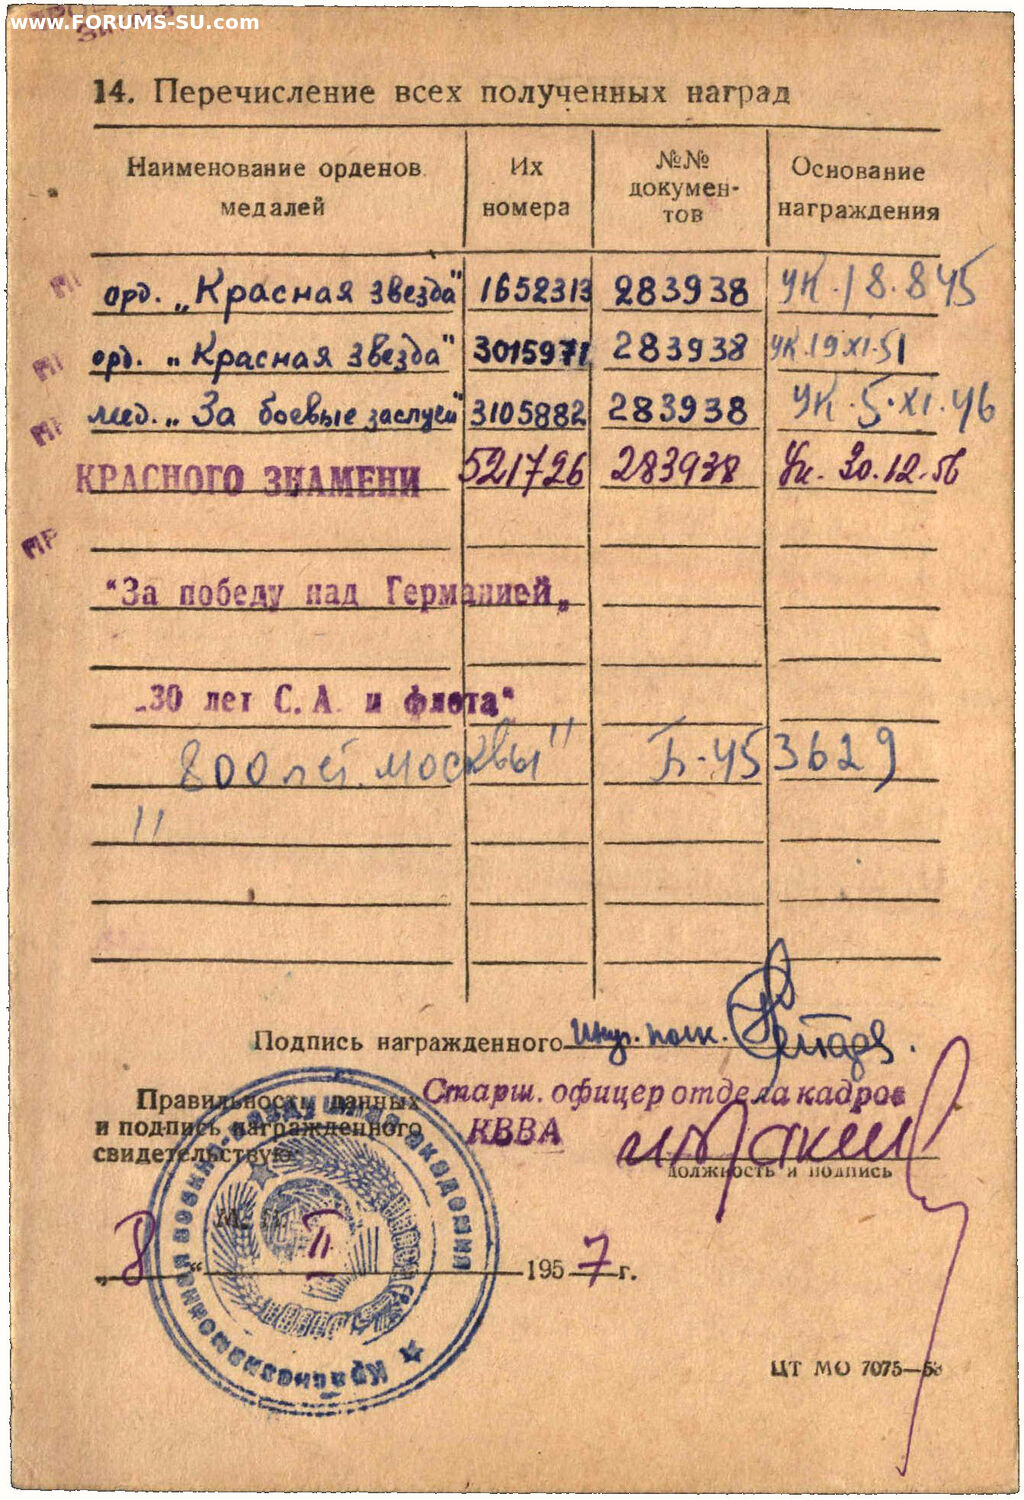 www.FORUMS-SU.com
14. Перечисление всех полученных наград
Наименование орденов медалей
Их номера
№№ докумен-тов
Основание награждения
орд. „Красная звезда" 1652313 283938 УК. 18.8 45
орд. „Красная звезда" 3015971 283938 УК 19 XI-51
мед. „За боевые заслуги" 3105882 283938 УК. 5. XI. 46
КРАСНОГО ЗНАМЕНИ 521726 283938 Ук. 30.12.56
МР
"За победу над Германией„
„30 лет С. А. и флота"
800 лет. москвы" Б-453629
"
Подпись награжденного Инж. полк.
Правильность данных Старш. офицер отдела кадров
и подпись награжденного КВВА
свидетельствую
должность и подпись
М. П.
„8" II 1957 г.
Краснознаменная военно-воздушная академия
ЦТ МО 7075—